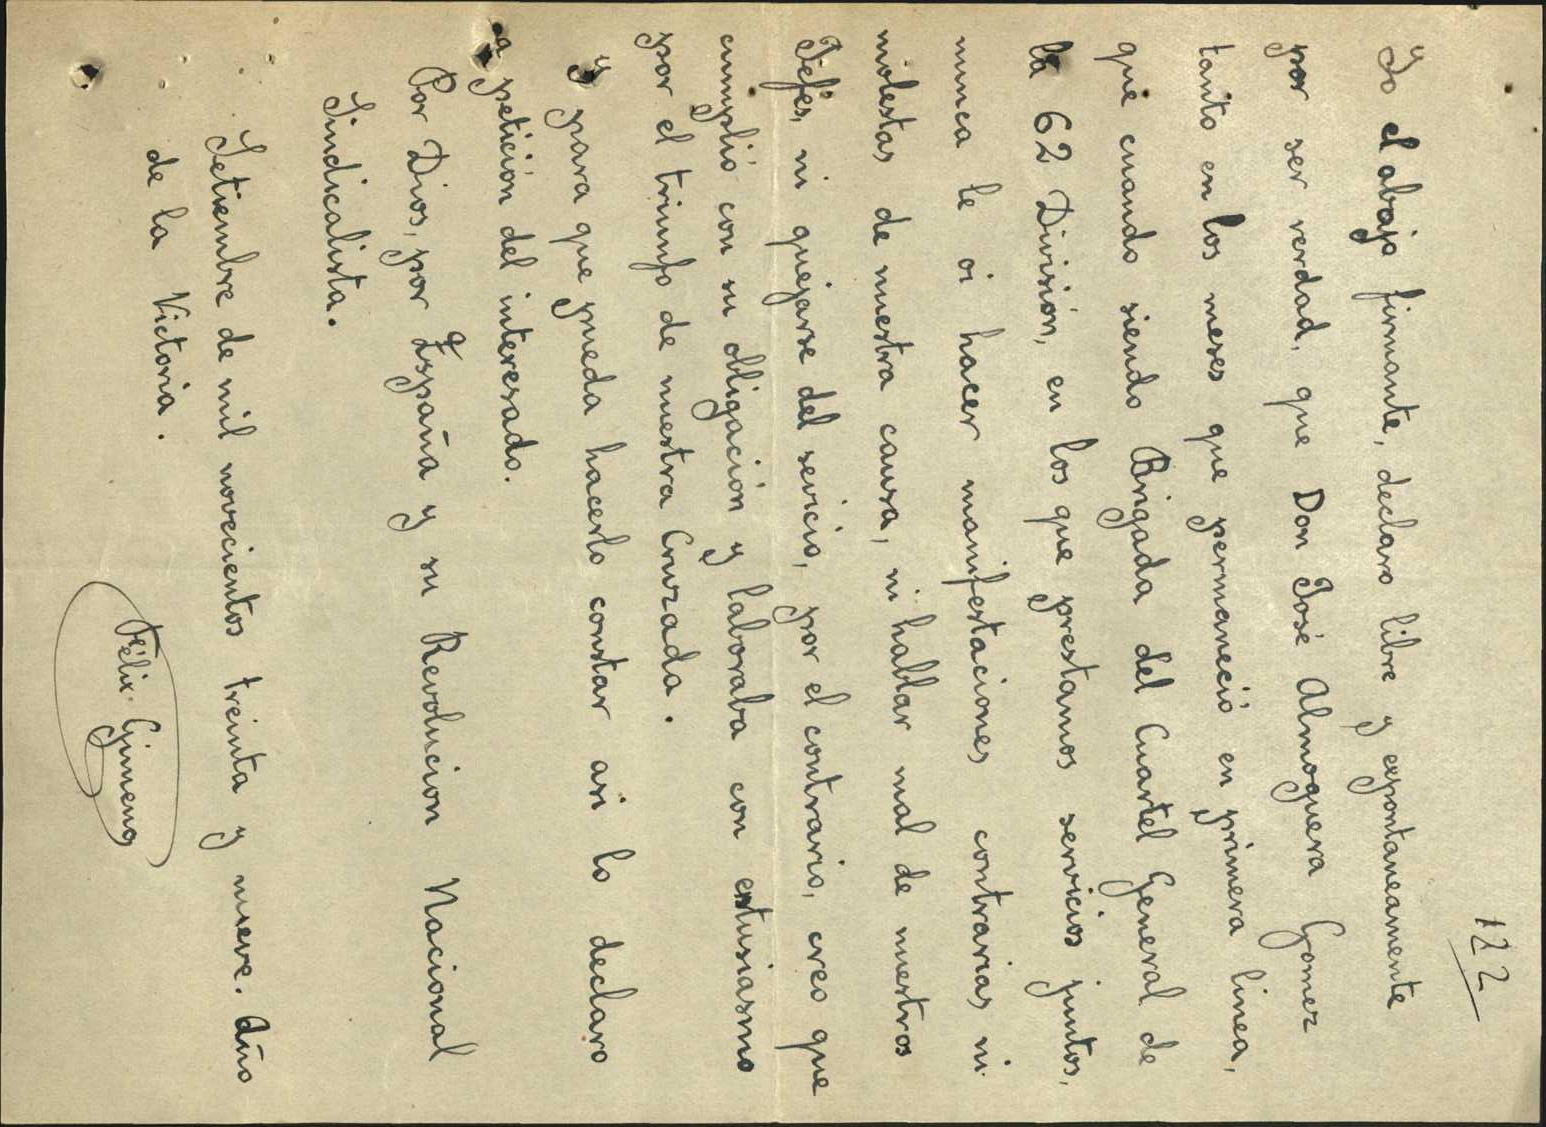 122
Yo el abajo firmante, declaro libre y expontaneamente
por ser verdad, que Don José Almoguera Gomez
tanto en los meses que permaneció en primera linea,
que cuando siendo Brigada del Cuartel General de
la 62 División, en los que prestamos servicios juntos,
nunca le oi hacer manifestaciones contrarias ni
molestas de nuestra causa, ni hablar mal de nuestros
Jefes, ni quejarse del sevicio, por el contrario, creo que
cumplió con su obligación y laboraba con entusiasmo
por el triunfo de nuestra Cruzada.
Y para que pueda hacerlo constar asi lo declaro
a petición del interesado.
Por Dios, por España y su Revolucion Nacional
Sindicalista.
Setiembre de mil novecientos treinta y nueve. Año
de la Victoria.
Félix Gimeno